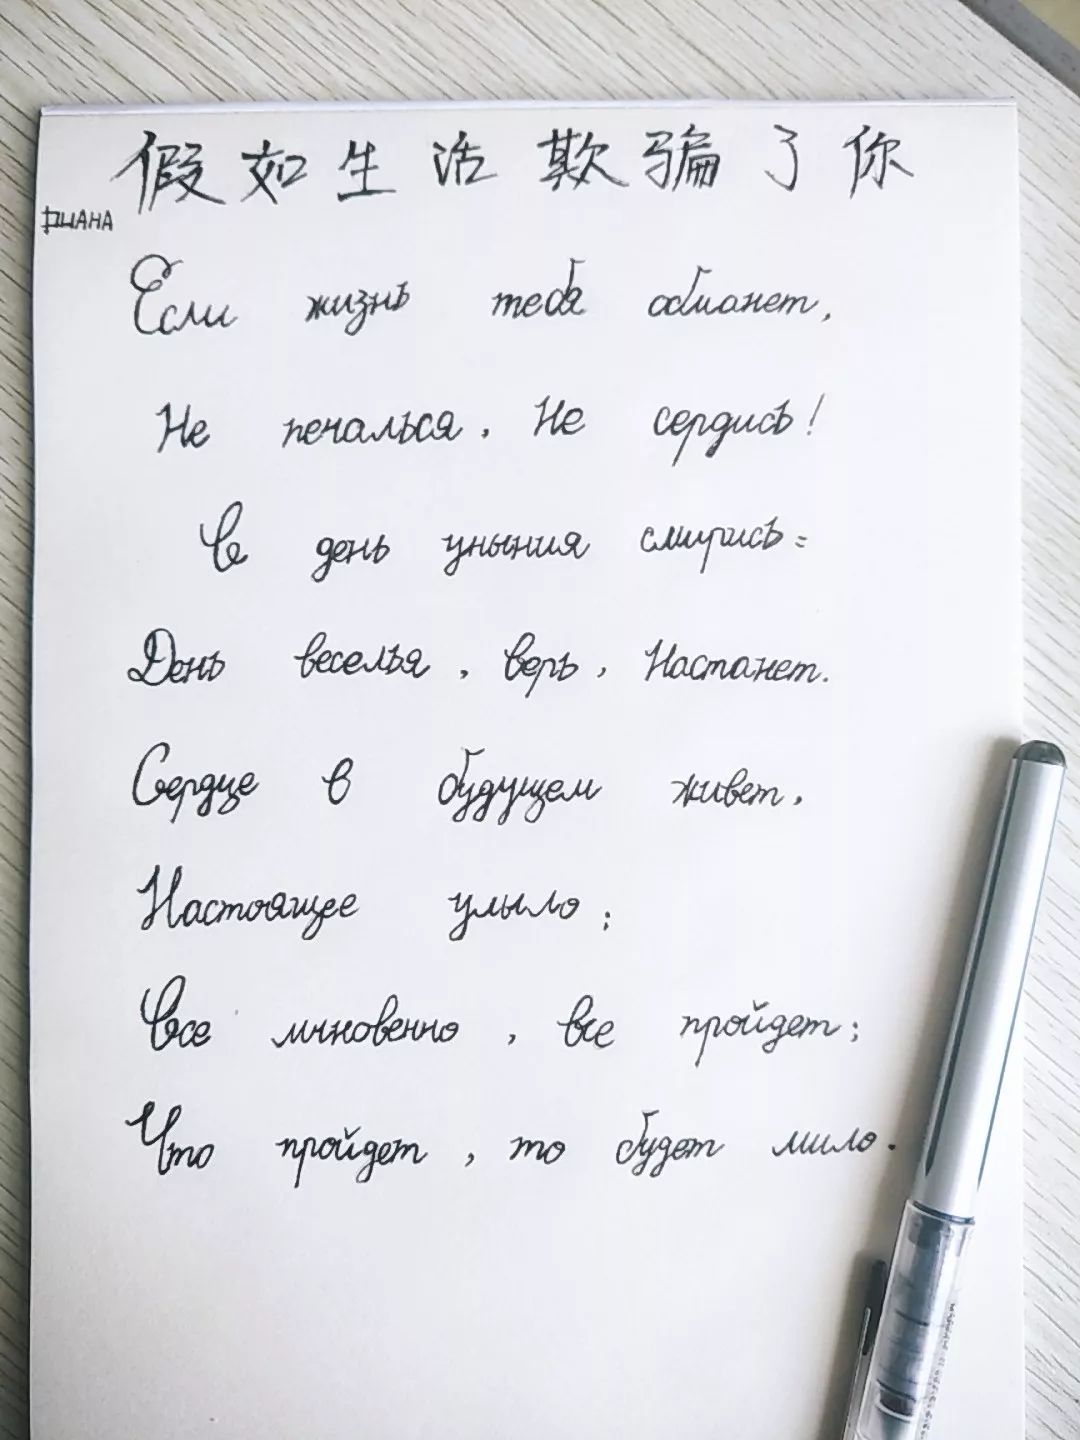 假如生活欺骗了你
Если жизнь тебя обманет,
Не печалься, Не сердись!
В день уныния смирись:
День веселья, верь, Настанет.
Сердце в будущем живет,
Настоящее улыло;
Все мгновенно, все пройдет;
Что пройдет, то будет мило.